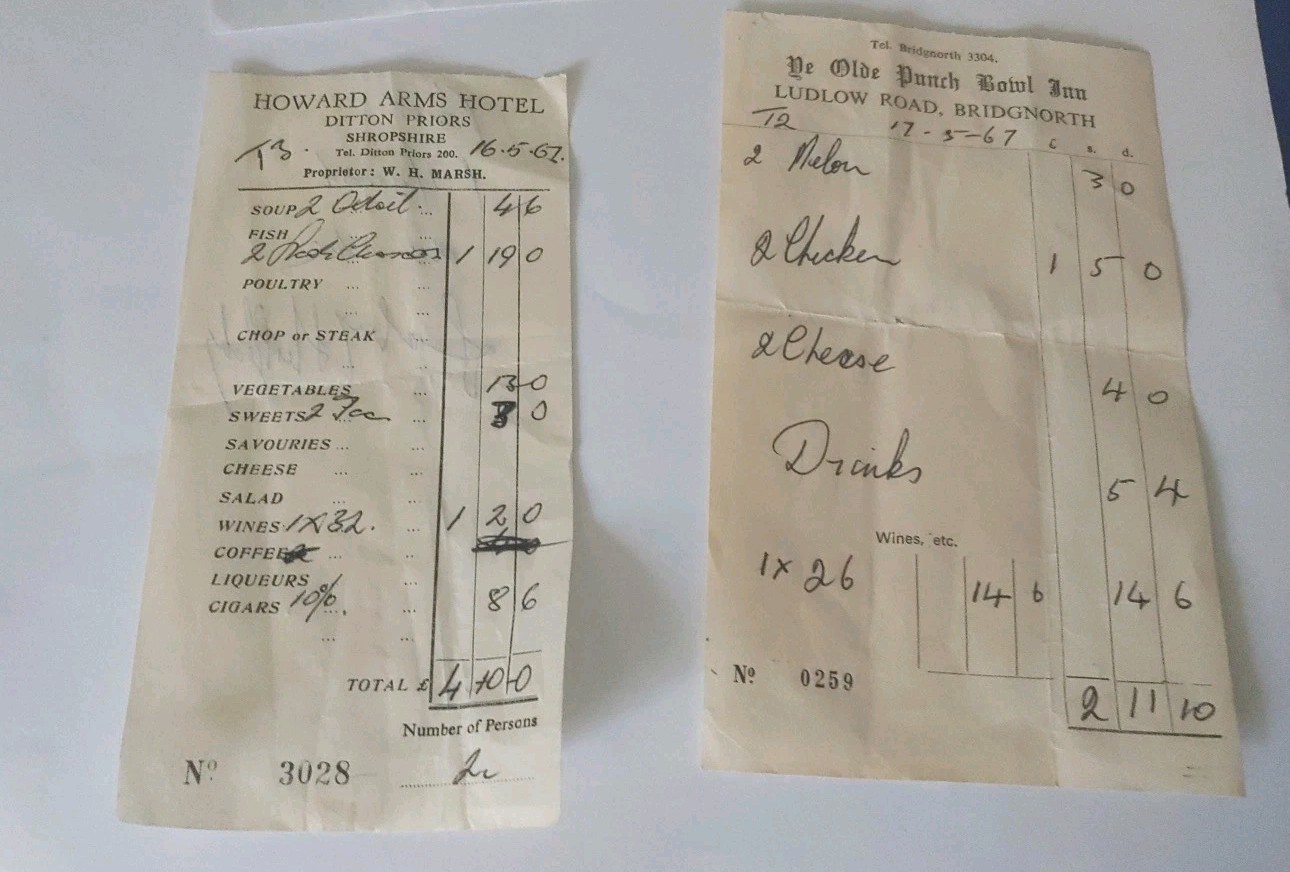 HOWARD ARMS HOTEL
DITTON PRIORS
SHROPSHIRE
T3. Tel. Ditton Priors 200. 16.5.67.
Proprietor: W. H. MARSH.
SOUP 2 ... 4 6
FISH ...
2 1 19 0
POULTRY ...
CHOP or STEAK ...
VEGETABLES ... 13 0
SWEETS 2 ... 3 0
SAVOURIES ... ...
CHEESE ... ...
SALAD ... ...
WINES 1 X 32. ... 1 2 0
COFFEE ... ...
LIQUEURS ...
CIGARS 10% ... 8 6
TOTAL £ 4 10 0
Number of Persons
Nº 3028 2
Tel. Bridgnorth 3304.
Ye Olde Punch Bowl Inn
LUDLOW ROAD, BRIDGNORTH
T2 17-5-67 £ s. d.
2 Melon 3 0
2 Chicken 1 5 0
2 Cheese 4 0
Drinks 5 4
Wines, etc.
1 x 26 14 6 14 6
Nº 0259
2 11 10